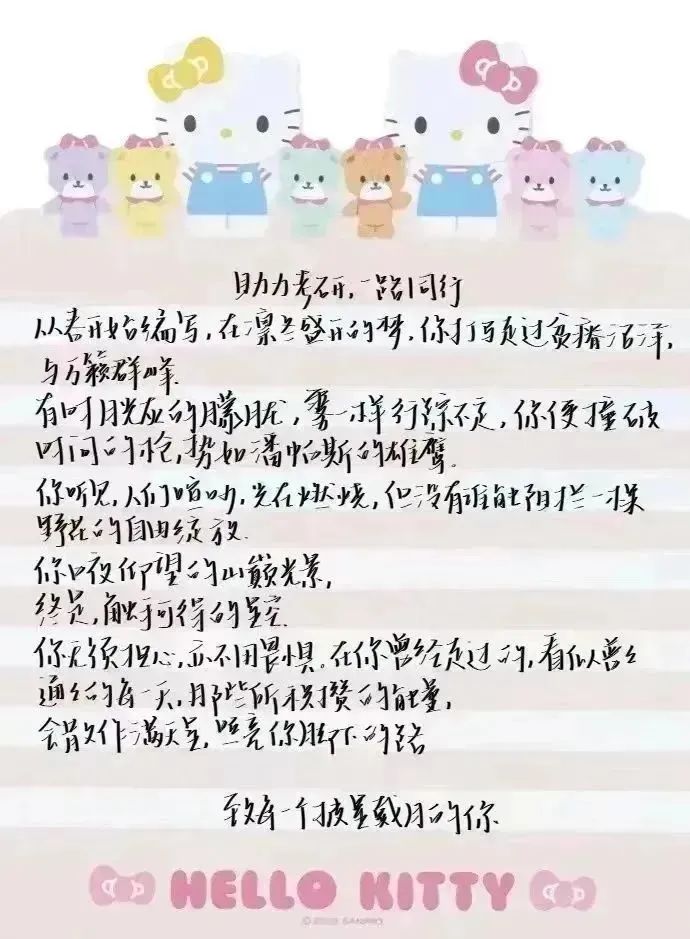 助力考研，一路同行
从春开始编写，在凛冬盛开的梦，你打马走过贫瘠沼泽，
与万籁群峰.
有时月光应的朦胧，雾一样行踪不定，你便撞破
时间的枪，势如潘帕斯的雄鹰。
你听见，人们喧吵，光在燃烧，但没有谁能阻拦一操
野花的自由绽放.
你日夜仰望的山巅光景，
终是，触手可得的星空
你无须担心，亦不用畏惧。在你曾经走过的，看似曾
通的每一天，那些所积攒的能量，
会散作满天星，照亮你脚下的路
致每一个披星戴月的你
HELLO KITTY
SANRIO